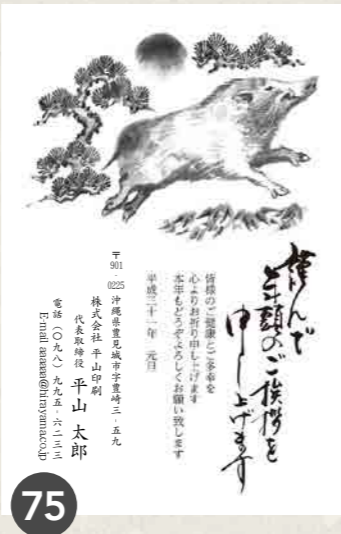 謹んで
年頭のご挨拶を
申し上げます
皆様のご健康とご多幸を
心よりお祈り申し上げます
本年もどうぞよろしくお願い致します
平成三十一年 元旦
〒901-0225 沖縄県豊見城市字豊崎三-五九
株式会社 平山印刷
代表取締役 平山 太郎
電話(〇九八)九九五-六二三三
E-mail aaaaaa@hirayama.co.jp
75